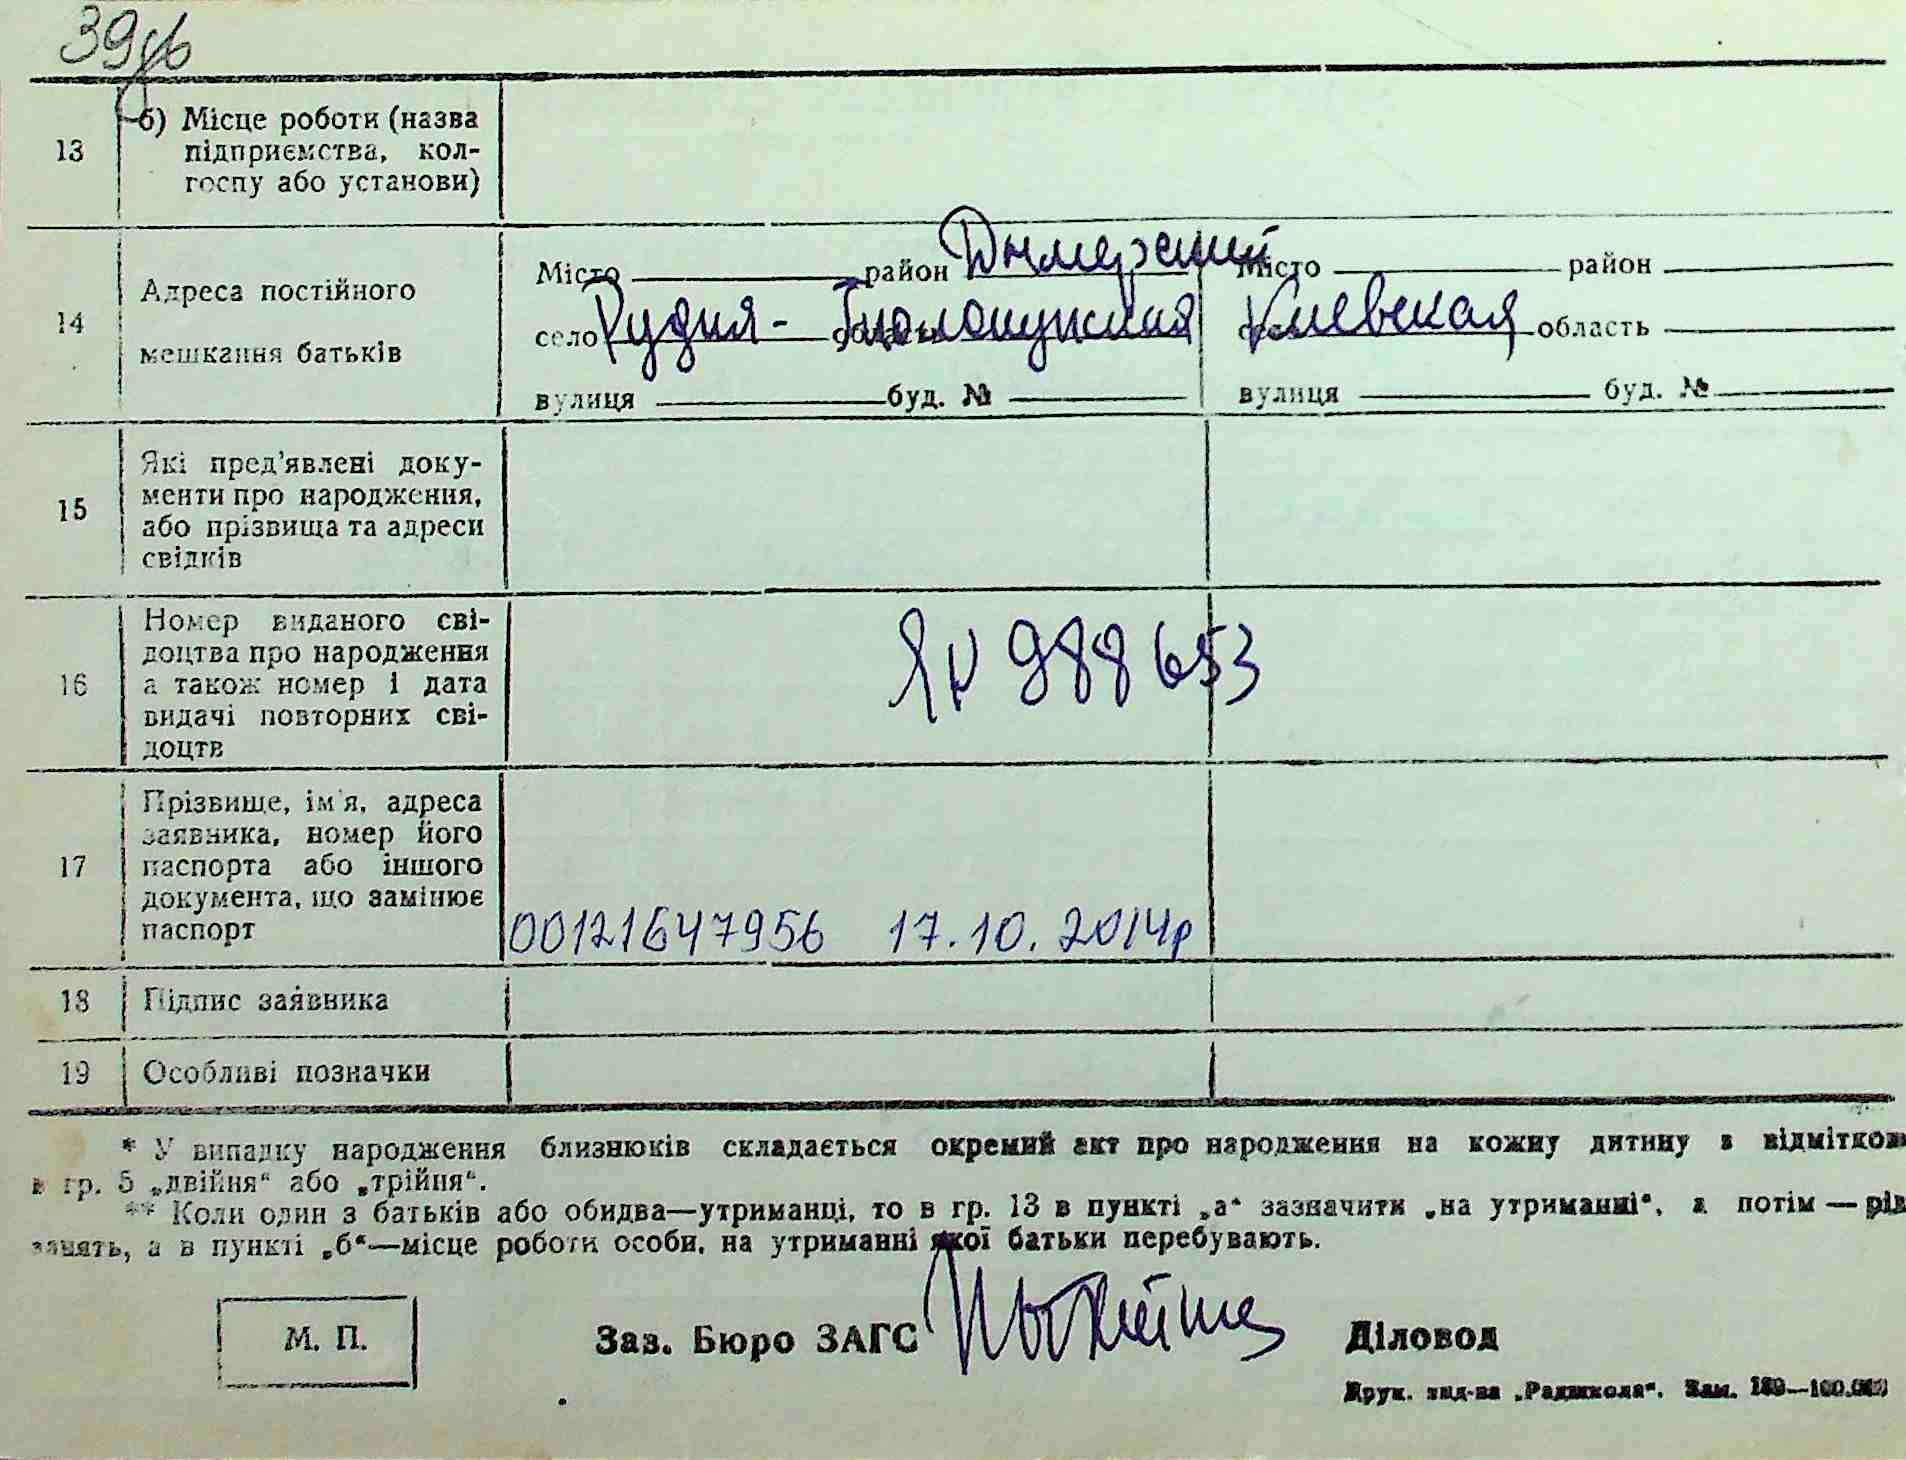 39
13
б) Місце роботи (назва
підприємства, кол-
госпу або установи)
14
Адреса постійного
мешкання батьків
Місто район Дымерский Місто район
село Рудня- область село Киевская область
вулиця буд. № вулиця буд. №
15
Які пред'явлені доку-
менти про народження,
або прізвища та адреси
свідків
16
Номер виданого сві-
доцтва про народження
а також номер і дата
видачі повторних сві-
доцтв
ЯИ 988653
17
Прізвище, ім'я, адреса
заявника, номер його
паспорта або іншого
документа, що замінює
паспорт
00121647956 17.10.2014р
18 Підпис заявника
19 Особливі позначки
* У випадку народження близнюків складається окремий акт про народження на кожну дитину в відміткою
в гр. 5 „двійня“ або „трійня“.
** Коли один з батьків або обидва—утриманці, то в гр. 13 в пункті „а“ зазначити „на утриманні“, а потім — рів
занять, а в пункті „б“—місце роботи особи, на утриманні якої батьки перебувають.
М. П.
Зав. Бюро ЗАГС
Діловод
Друк. вид-ва „Радшкола“. Зам. 180—100.000